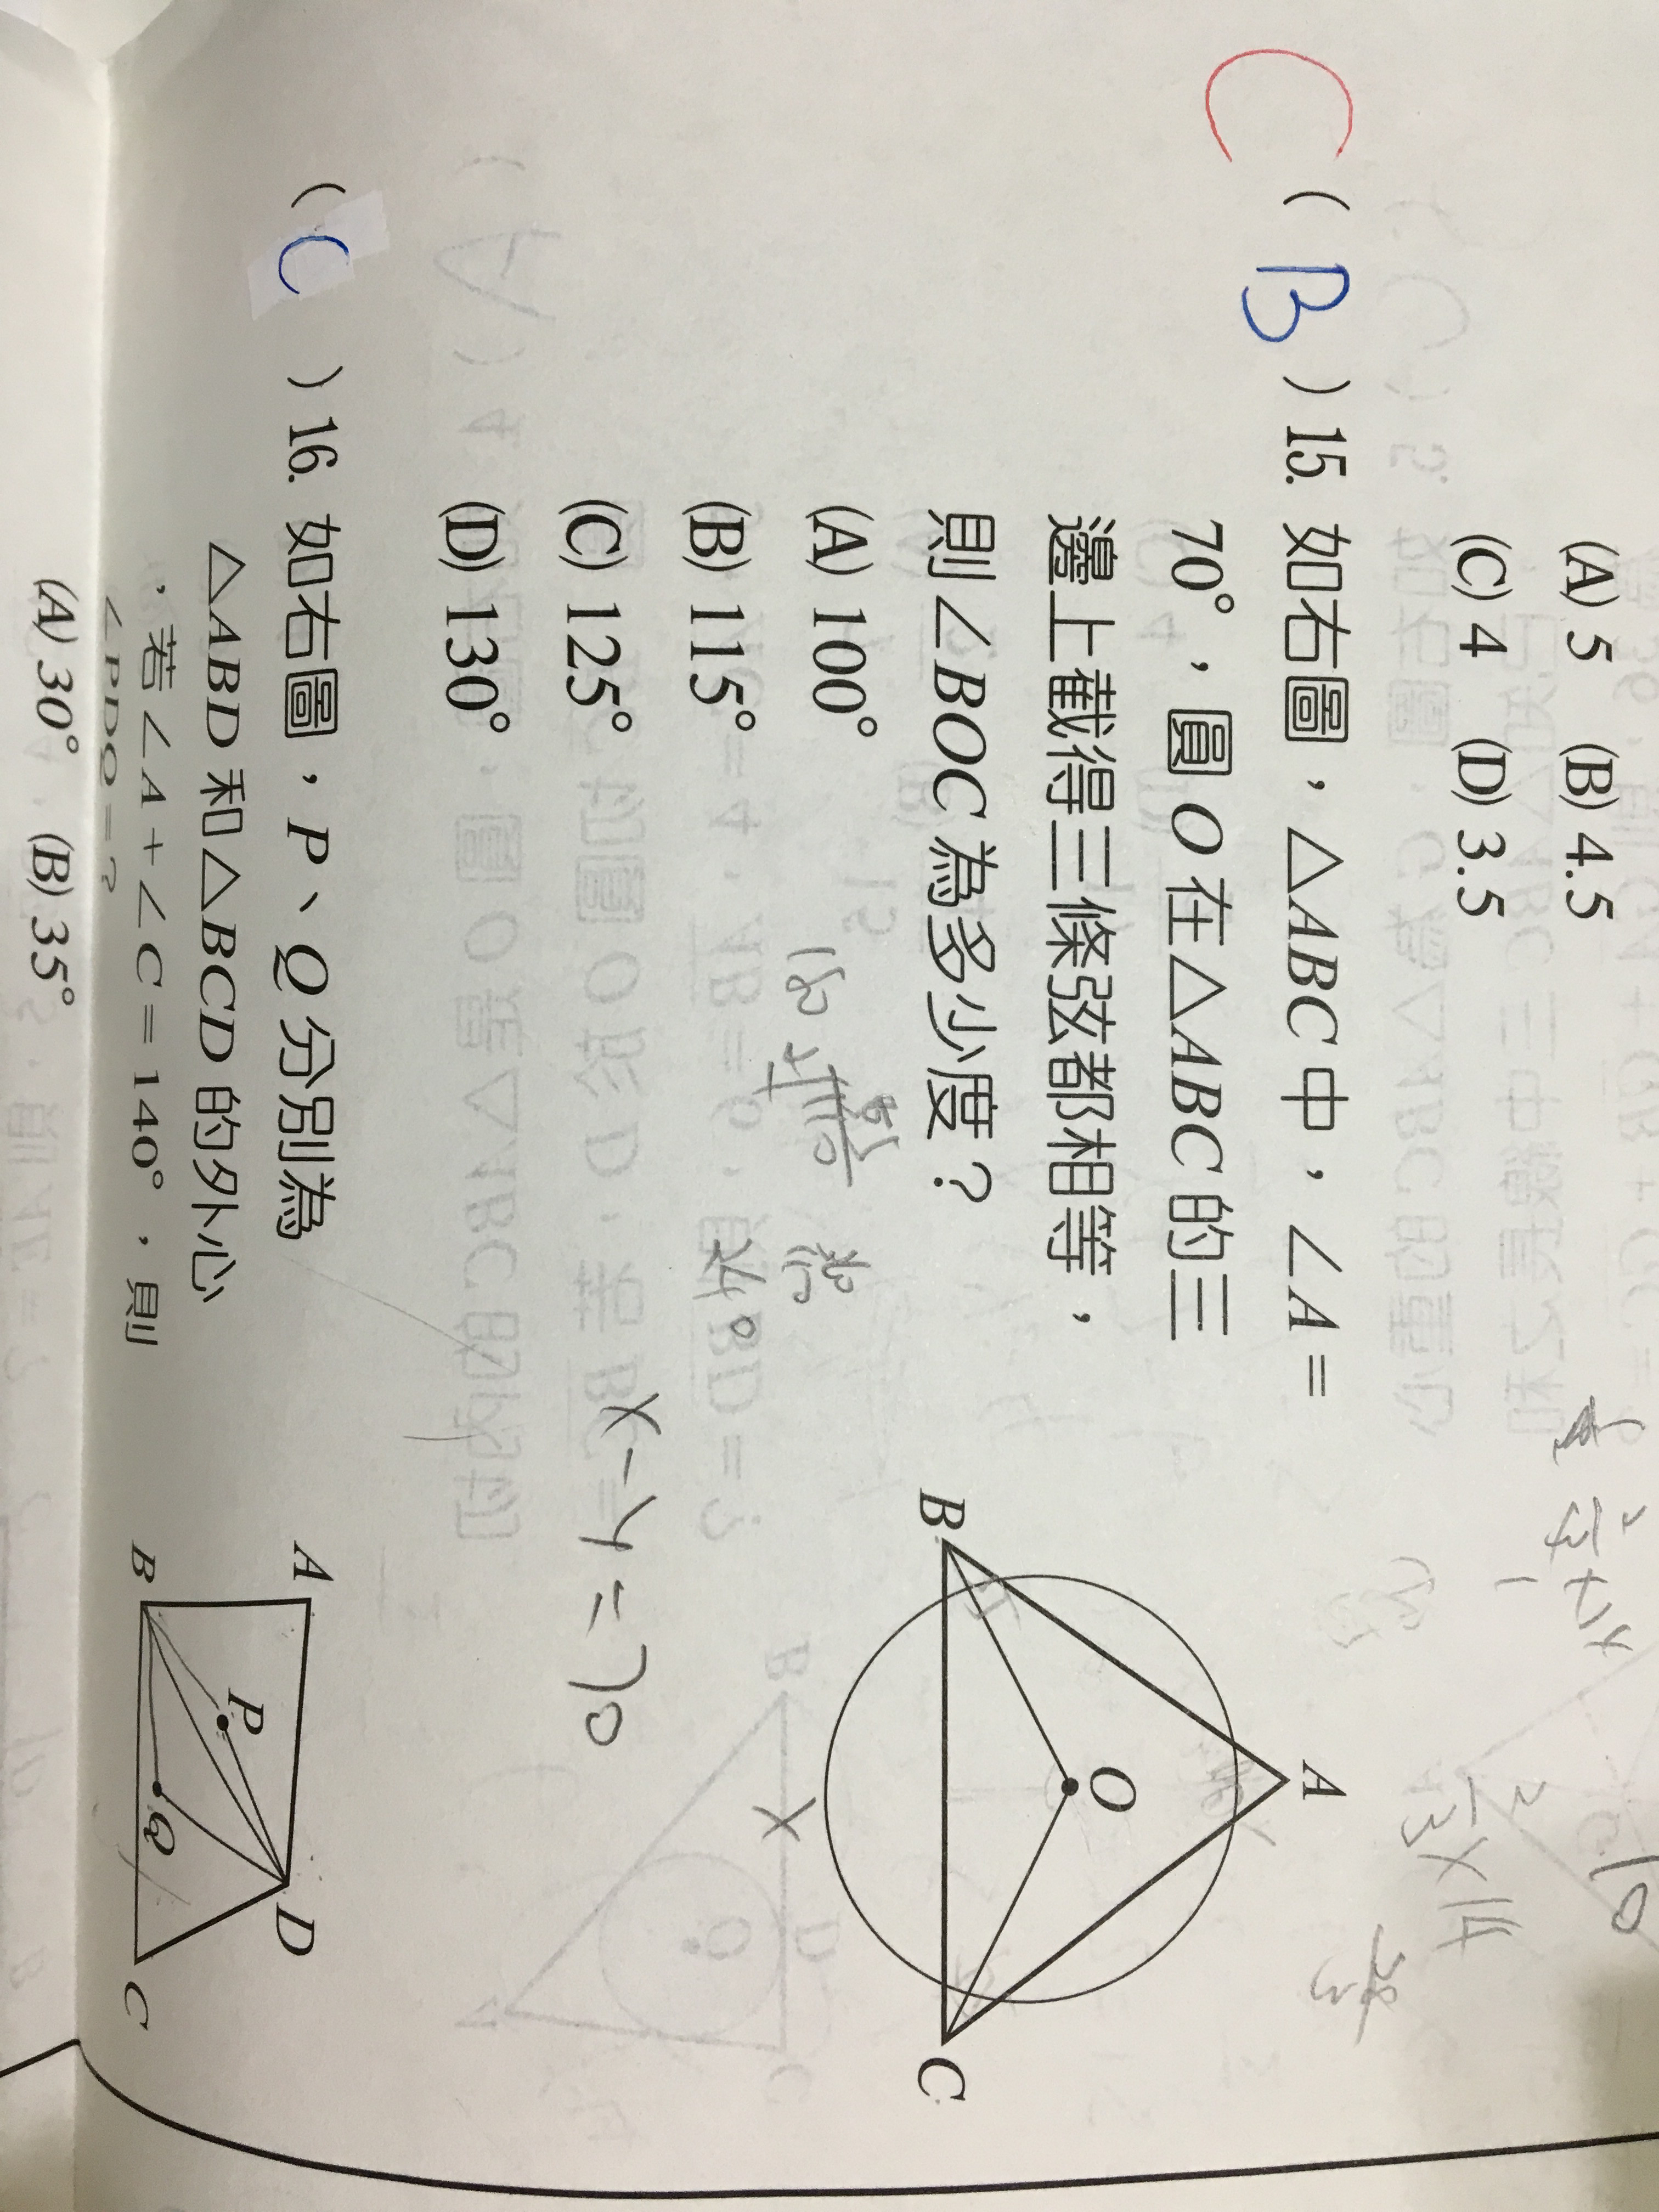 (A) 5 (B) 4.5
(C) 4 (D) 3.5
C
( B ) 15. 如右圖，△ABC 中，∠A =
70°，圓 O 在△ABC 的三
邊上截得三條弦都相等，
則∠BOC 為多少度？
(A) 100°
(B) 115°
(C) 125°
(D) 130°
A
O
B
C
x - y = 10
( C ) 16. 如右圖，P、Q 分別為
△ABD 和△BCD 的外心
，若∠A + ∠C = 140°，則
∠PDQ = ?
(A) 30° (B) 35°
A
D
P
Q
B
C